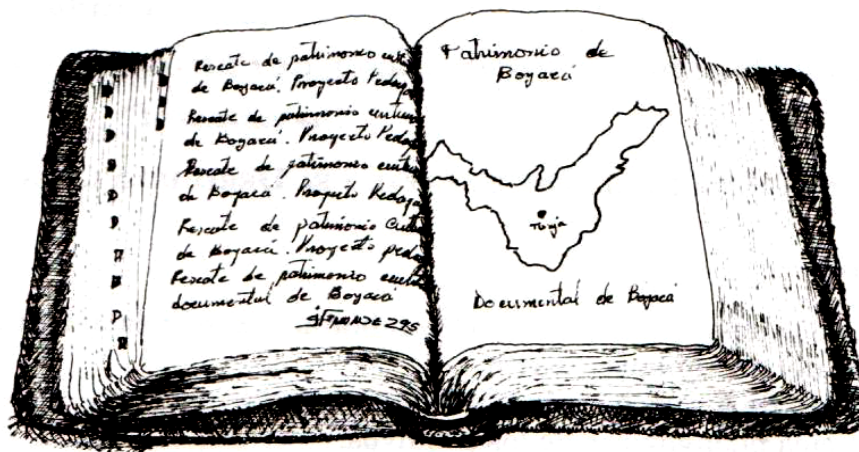 Rescate de patrimonio cult
de Boyacá. Proyecto Pedag
Rescate de patrimonio cultur
de Boyacá. Proyecto Pedag
Rescate de patrimonio cultu
de Boyacá. Proyecto Pedago
Rescate de patrimonio Cultu
de Boyacá. Proyecto peda
Rescate de patrimonio cultu
documental de Boyacá
Patrimonio de
Boyacá
Tunja
Documental de Boyacá